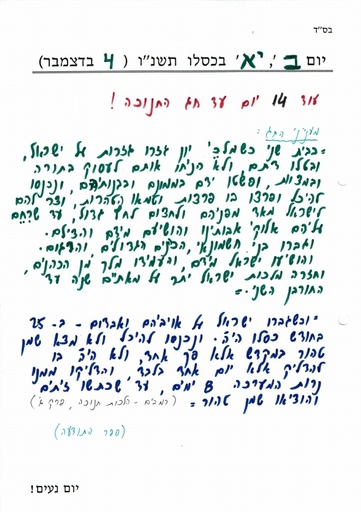 בס"ד
יום ב', י"א בכסלו תשנ"ו ( 4 בדצמבר)
עוד 14 יום עד חג החנוכה !
מעניני החג:
"בבית שני כשמלכי יון גזרו גזרות על ישראל,
ובטלו דתם, ולא הניחו אותם לעסוק בתורה
ובמצוות, ופשטו ידם בממונם ובבנותיהם, ונכנסו
להיכל ופרצו בו פרצות וטמאו הטהרות, וצר להם
לישראל מאד מפניהם ולחצום לחץ גדול, עד שריחם
עליהם אלוקי אבותינו והושיעם מידם והצילם.
וגברו בני חשמונאי, הכהנים הגדולים והרגום.
והושיעו ישראל מידם, והעמידו מלך מן הכהנים,
וחזרה מלכות ישראל יתר על מאתיים שנה עד
החורבן השני".
"וכשגברו ישראל על אויביהם ואבדום - ב- 25
בחודש כסלו היה. ונכנסו להיכל ולא מצא שמן
טהור במקדש אלא פך אחד, ולא היה בו
להדליק אלא יום אחד בלבד, והדליקו ממנו
נרות המערכה 8 ימים, עד שכתשו זיתים
והוציאו שמן טהור" (רמב"ם - הלכות חנוכה, פרק ג')
(ספר התודעה)
יום נעים!